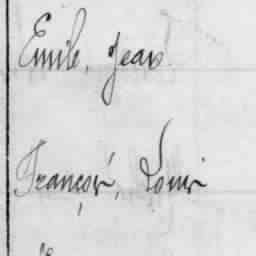 Emile, Jean
François, Louis